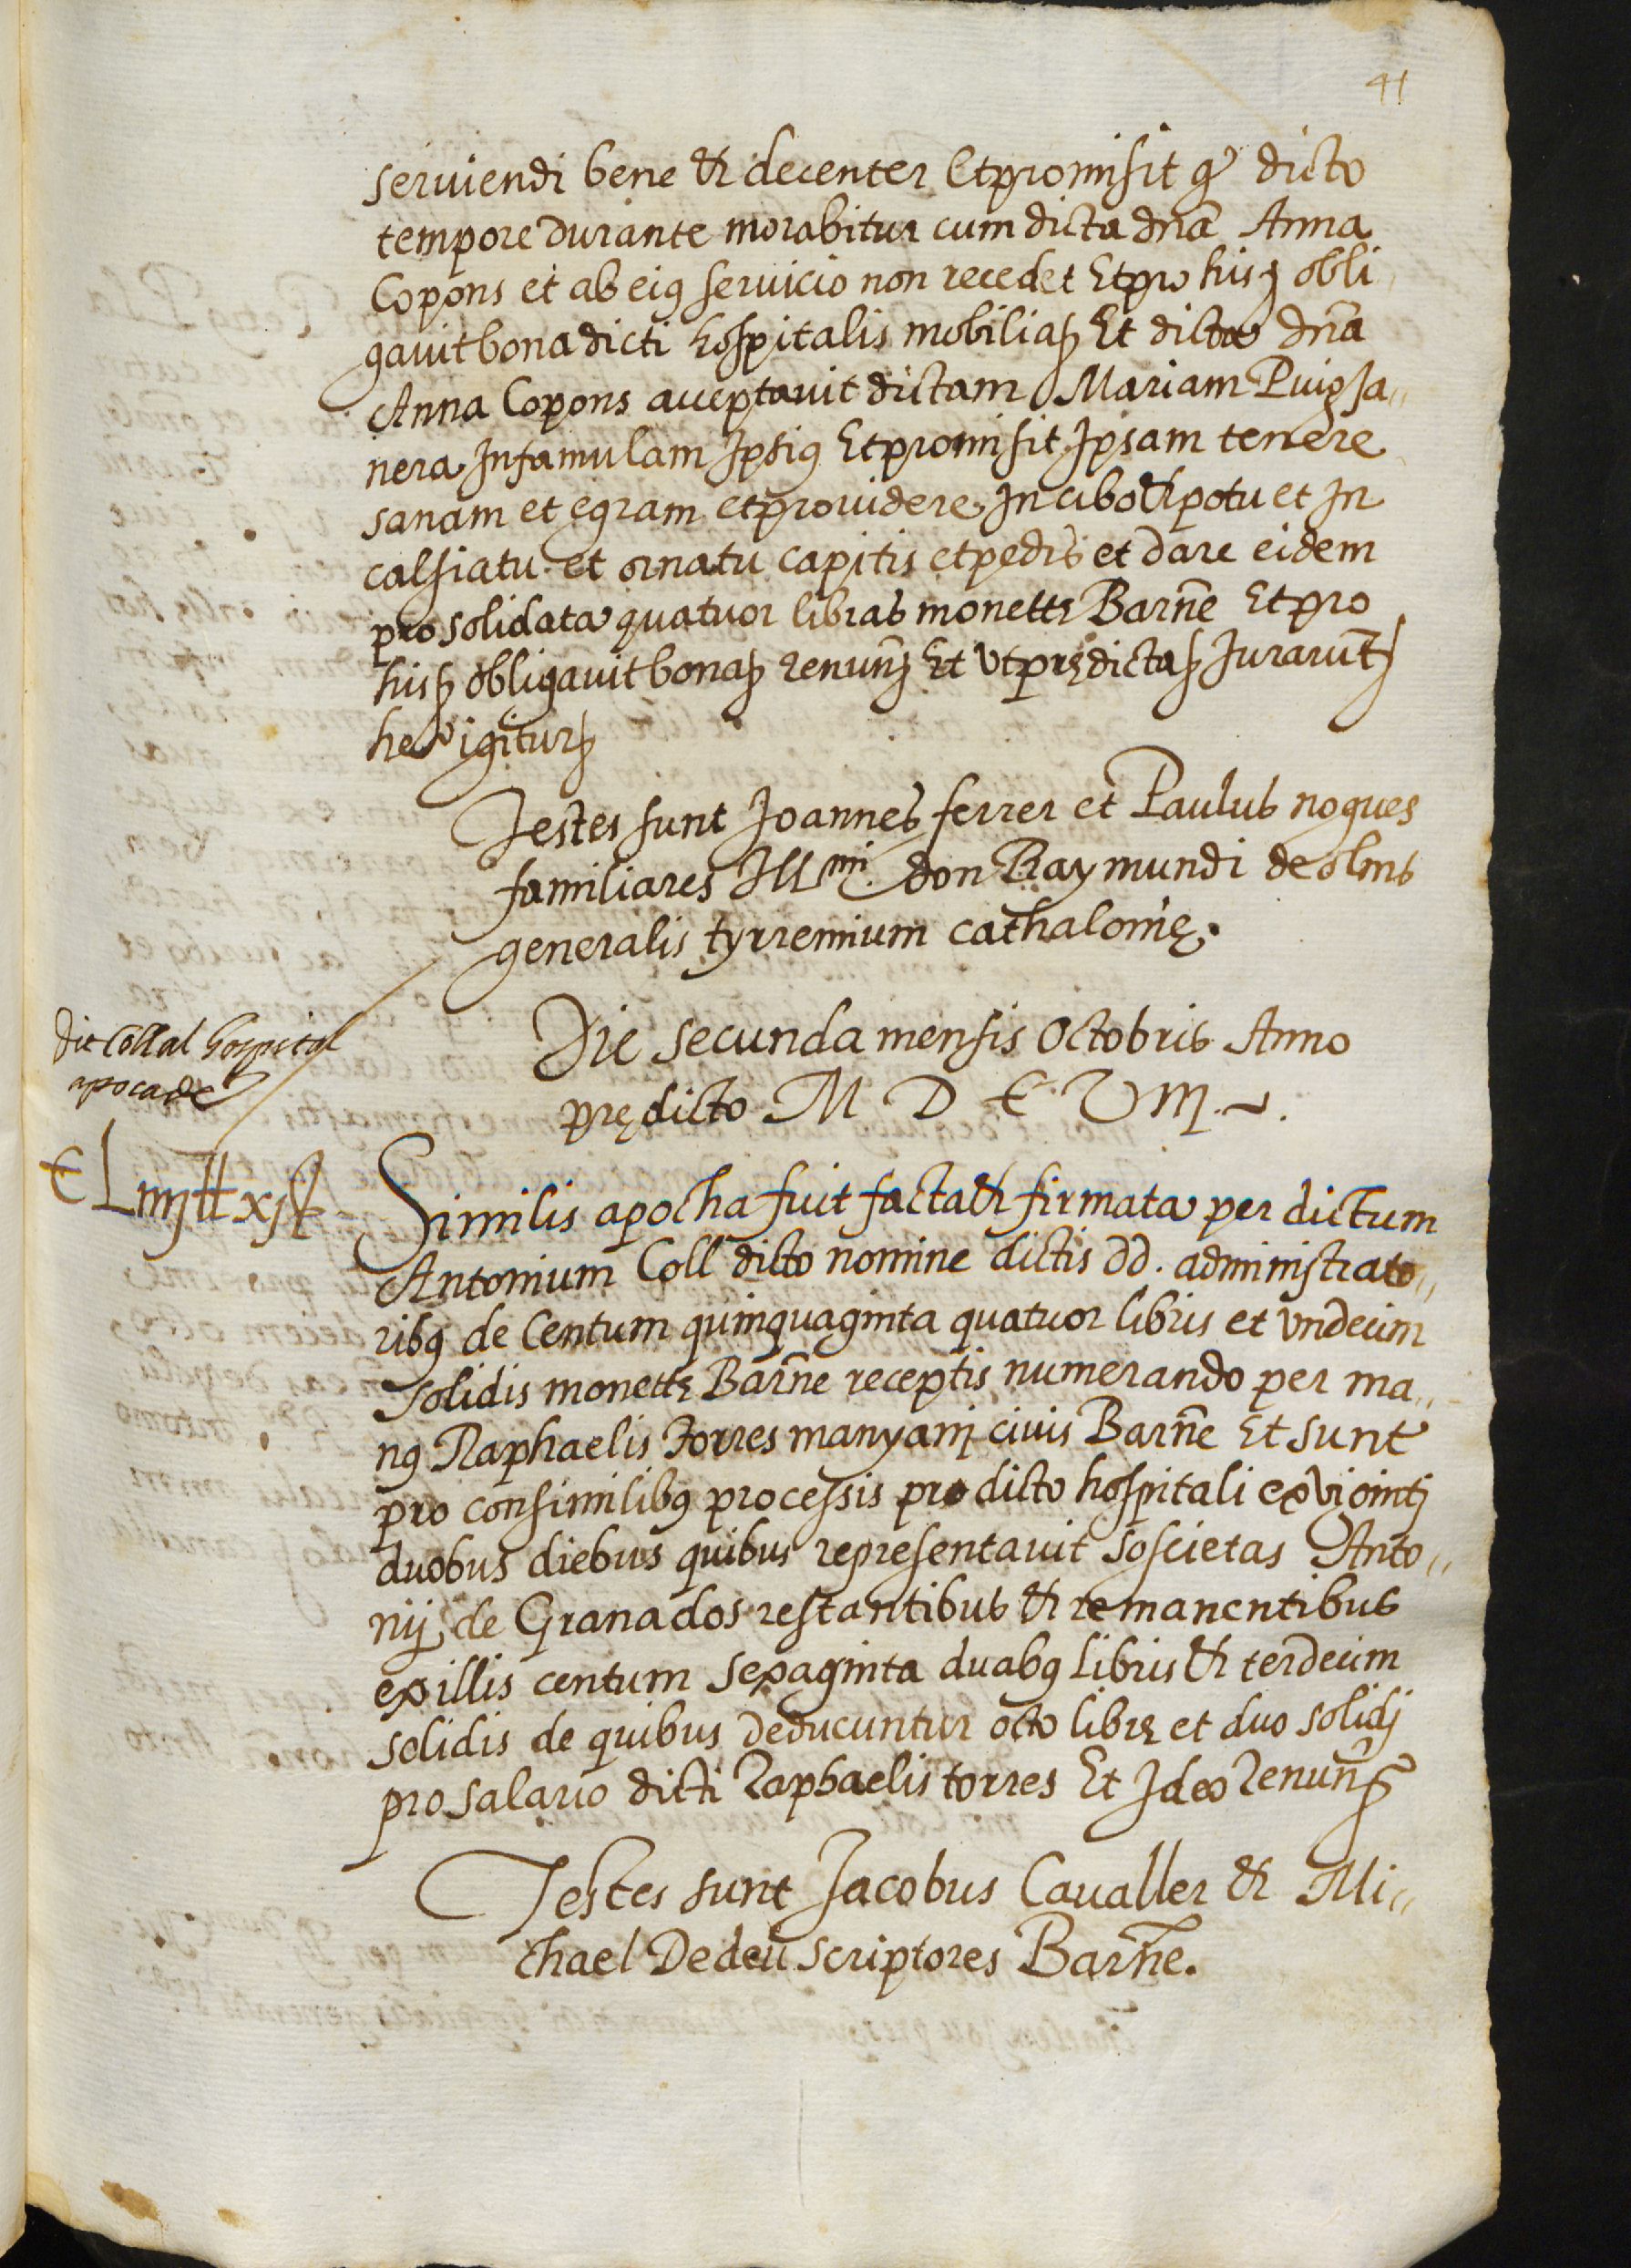 41
seruiendi bene et decenter Et promisit q dicto
tempore durante morabitur cum dicta dña Anna
Copons et ab eiꝰ seruicio non recedet Et pro his obli
gauit bona dicti hospitalis mobilia Et dicta dña
Anna Copons acceptauit dictam Mariam Puigja„
nera In famulam Ipsiꝰ Et promisit Ipsam tenere
sanam et ęgram et prouidere In cibo et potu et In
calsiatu et ornatu capitis et pedis et dare eidem
pro solidata quatuor libras monetę Barñe Et pro
his obligauit bona renun Et vt prędicta Jurarut
hec igitur
Testes sunt Joannes ferrer et Paulus nogues
familiares Ill.mi don Raymundi de olms
generalis tyrremium cathalonię.
Die secunda mensis Octobris Anno
prędicto M D C Viii.
dit Coll al hospital
apoca de
C Liiij ll xj s
Similis apocha fuit facta et firmata per dictum
Antonium Coll dicto nomine dictis dd. administrato„
ribꝰ de Centum quinquaginta quatuor libris et vndecim
solidis monetę Barñe receptis numerando per ma„
nꝰ Raphaelis Torres manyani ciuis Barñe Et sunt
pro consimilibꝰ processis pro dicto hospitali ex viginti
duobus diebus quibus representauit soscietas Anto„
nij de Granados restantibus et remanentibus
ex illis centum sexaginta duabꝰ libris et terdecim
solidis de quibus deducuntur octo librę et duo solidj
pro salario dicti Raphaelis torres Et Ideo Renun
Testes sunt Jacobus Caualler et Mi„
chael Dedeu scriptores Barñe.